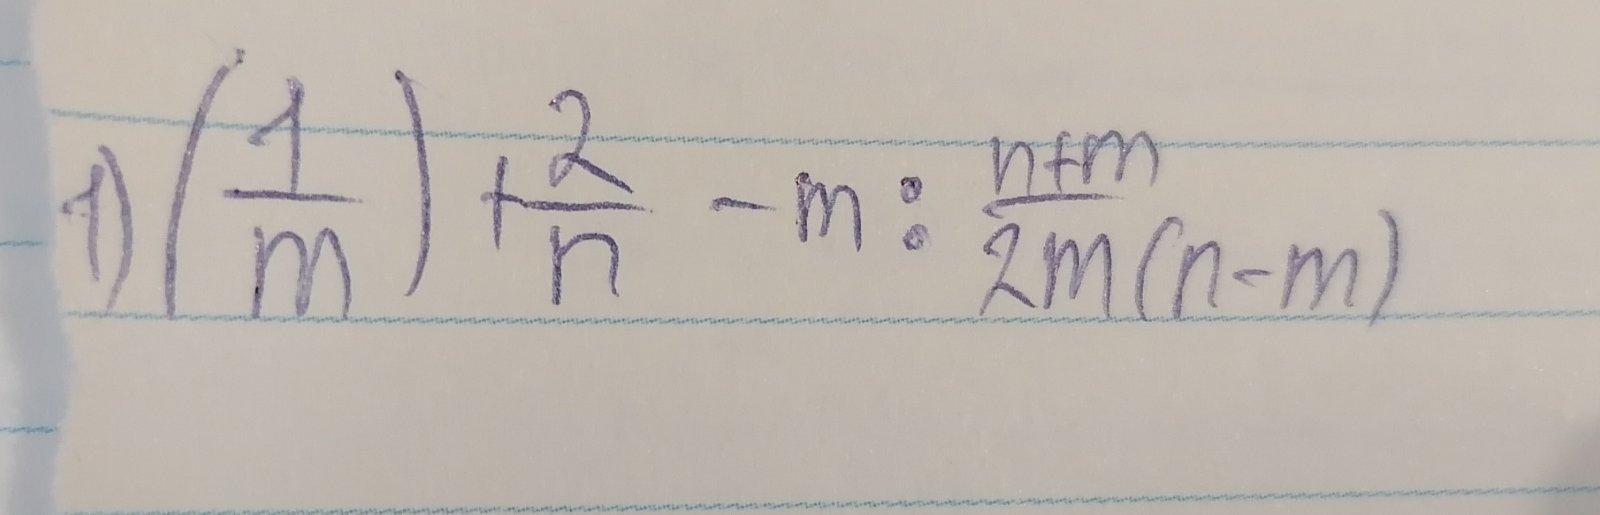 1) (1/m) + 2/n - m : n+m/2m(n-m)